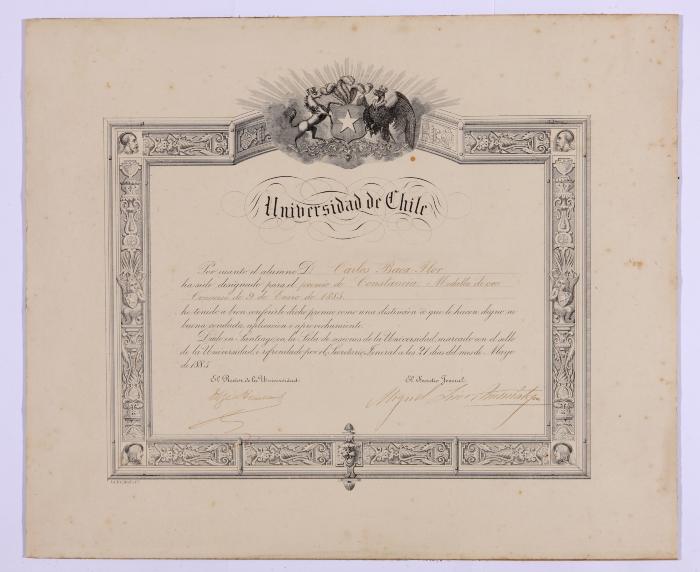 Universidad de Chile
Por cuanto el alumno D. Carlos Baca Flor
ha sido designado para el premio de Constancia Medalla de oro
Concurso de 9 de Enero de 1885.
he tenido a bien conferirle dicho premio como una distincion a que le hacen digno su
buena conducta, aplicacion i aprovechamiento.
Dado en Santiago, en la Sala de sesiones de la Universidad, marcado con el sello
de la Universidad, i refrendado por el Secretario Jeneral a los 21 dias del mes de Mayo
de 1885
El Rector de la Universidad. El Secretario Jeneral.
Miguel Luis Amunátegui